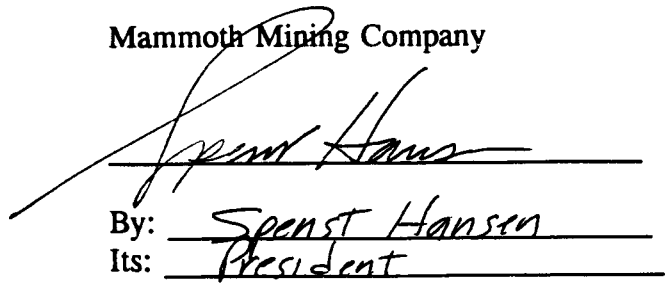 Mammoth Mining Company
Spenst Hansen
By: Spenst Hansen
Its: President